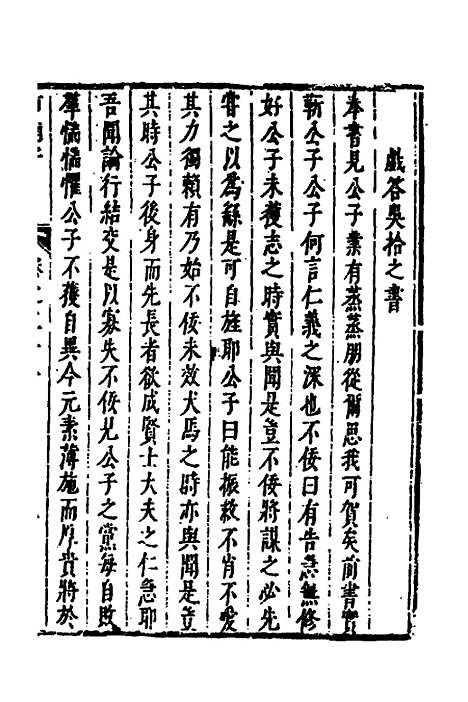 戲答吳拾之書
奉書見公子業有蒸蒸朋從爾思我可賀矣前書實
靳公子公子何言仁義之深也不佞曰有告急無修
好公子未獲志之時實與聞是豈不佞將謀之必先
嘗之以爲繇是可自旌耶公子曰能振救不肖不愛
其力獨賴有乃始不佞未效犬馬之時亦與聞是豈
其時公子後身而先長者欲成賢士大夫之仁急耶
吾聞論行結交是以寡失不佞見公子之黨每自敗
羣惴惴懼公子不獲自異今元素薄施而厚責將於